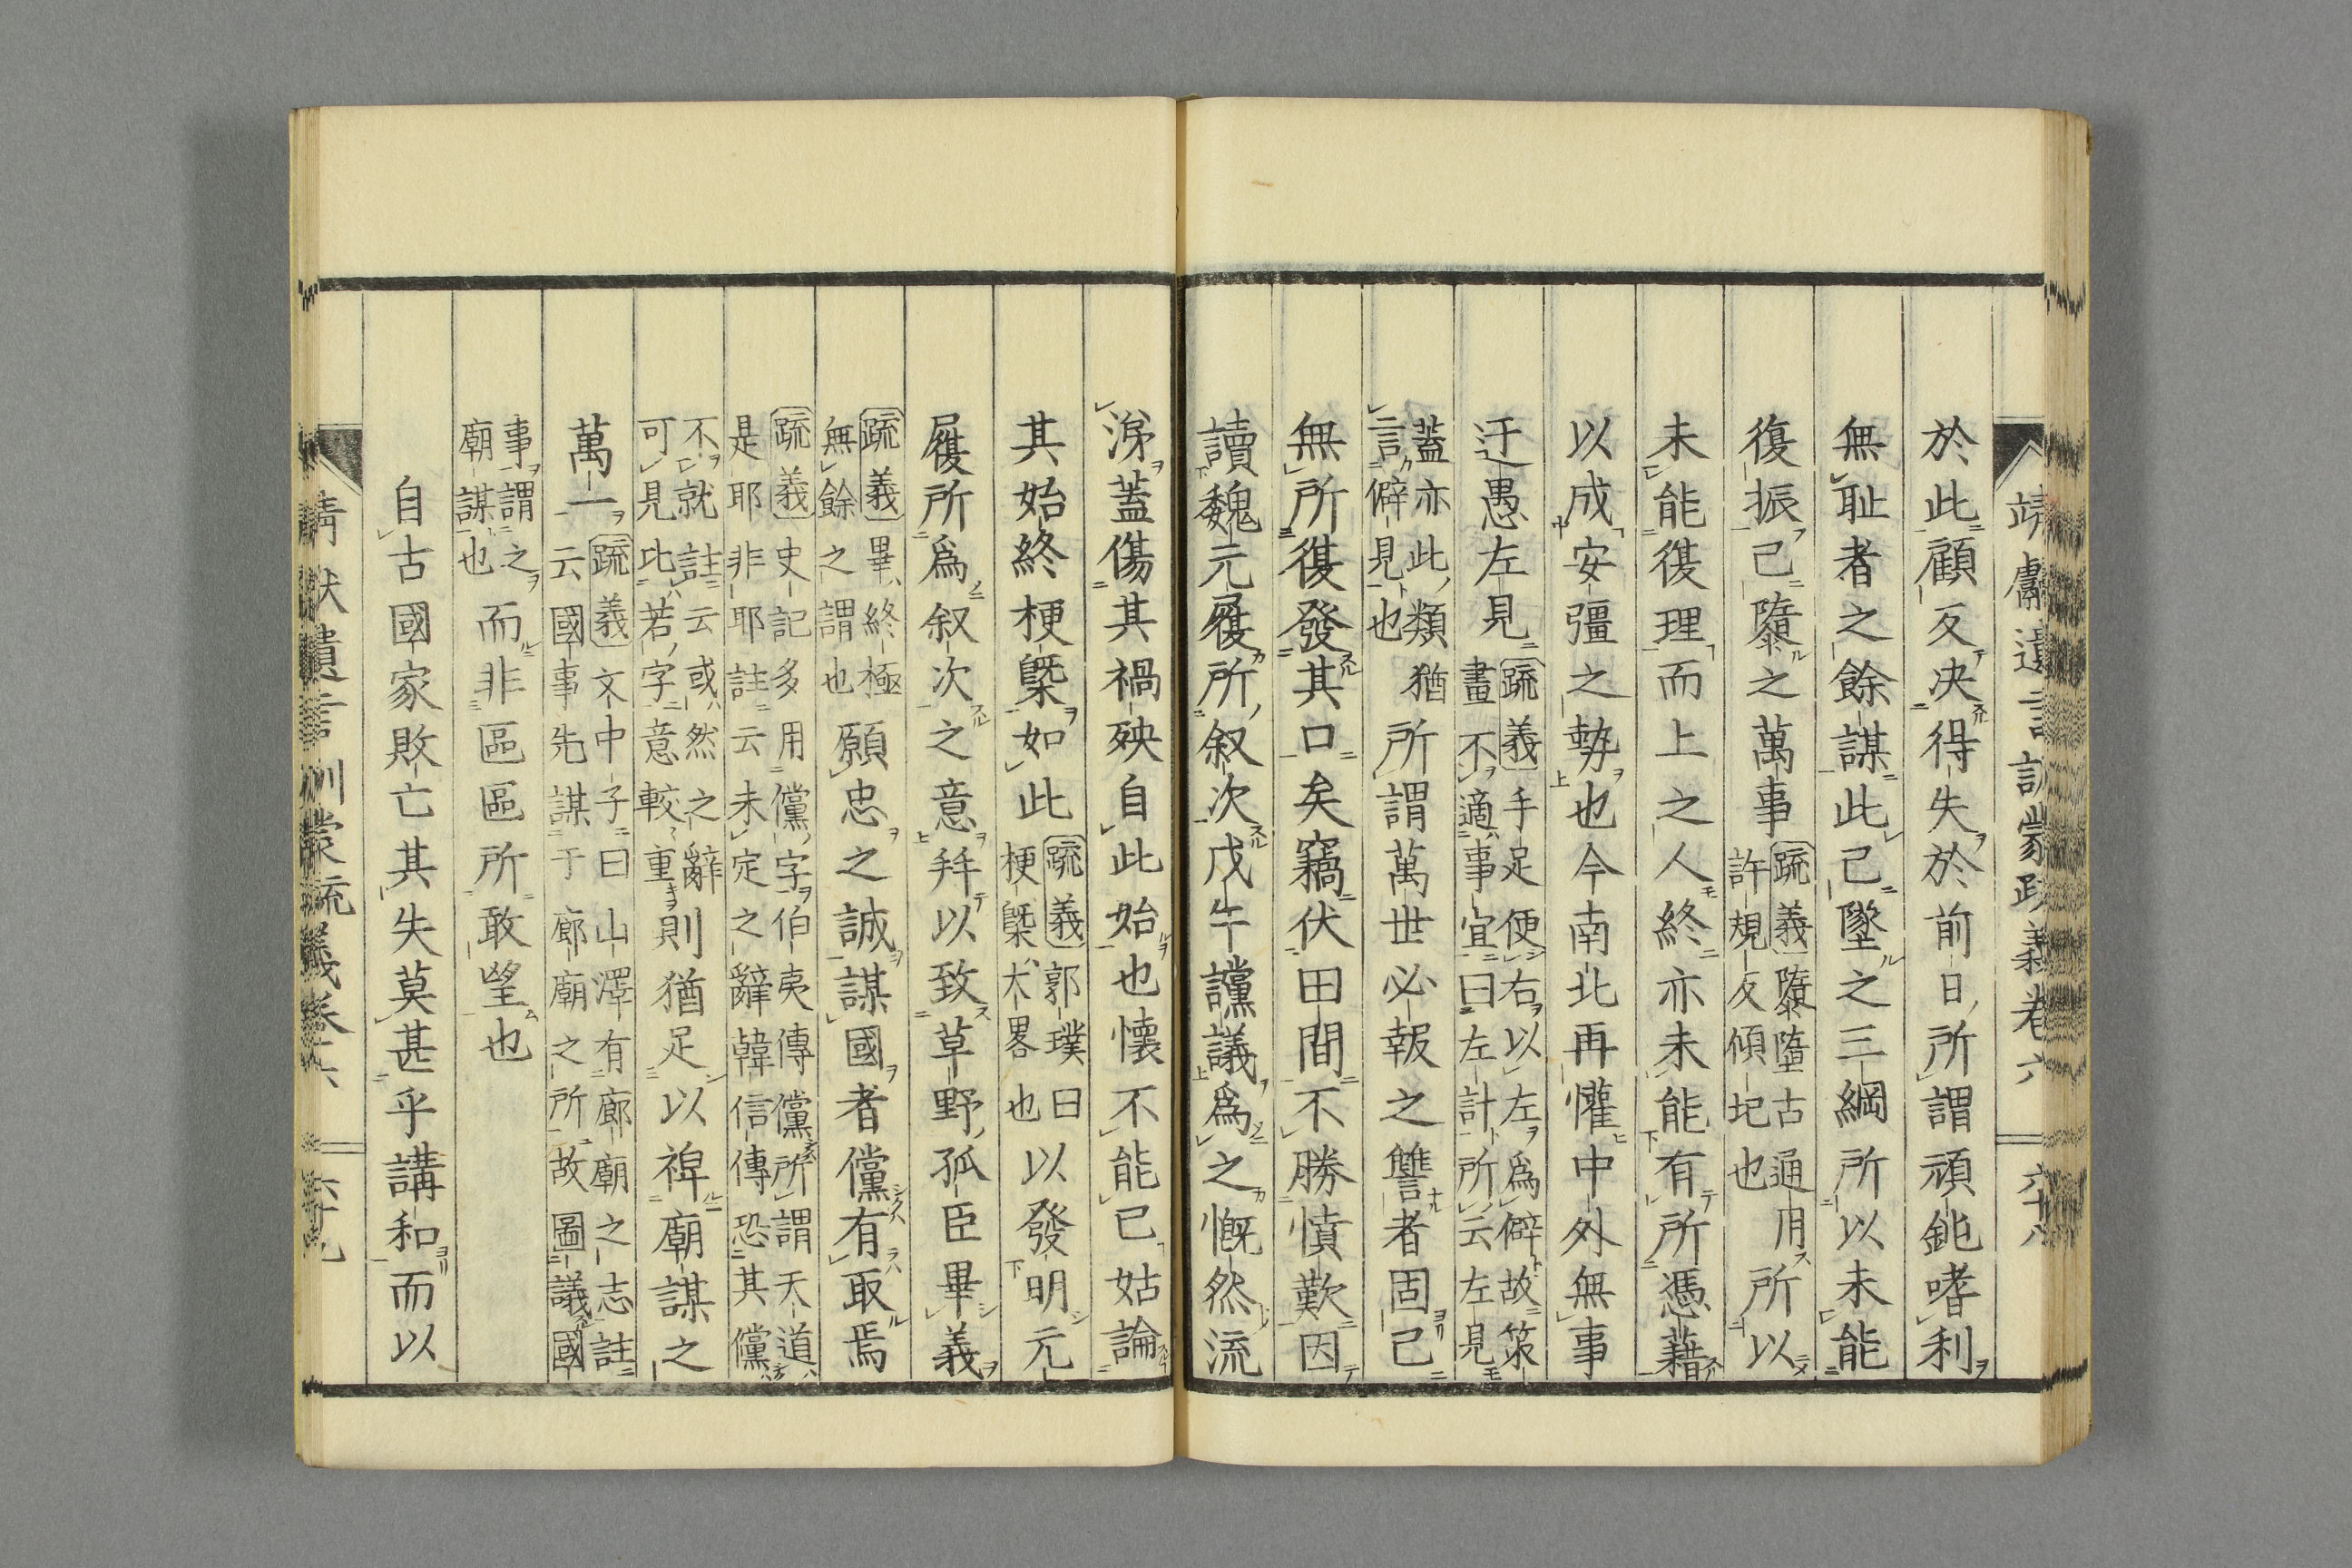 靖獻遺言訓蒙疏義卷六 六十八
於此顧反决得失於前日所謂頑鈍嗜利
無耻者之餘謀此已墜之三綱所以未能
復振已隳之萬事疏義隳墮古通用許規反傾圮也所以
未能復理而上之人終亦未能有所憑藉
以成安彊之勢也今南北再懽中外無事
迂愚左見疏義手足便右以左爲僻故策畫不適事宜曰左計所云左見
蓋亦此類猶言僻見也所謂萬世必報之讐者固已
無所復發其口矣竊伏田間不勝憤歎因
讀魏元履所叙次戊午讜議爲之慨然流
涕蓋傷其禍殃自此始也懷不能已姑論
其始終梗槩如此疏義郭璞曰梗槩大畧也以發明元
履所爲叙次之意拜以致草野孤臣畢義
疏義畢終極無餘之謂也願忠之誠謀國者儻有取焉
疏義史記多用儻字伯夷傳儻所謂天道是耶非耶註云未定之辭韓信傳恐其儻
不就註云或然之辭可見此若字意較重則猶足以裨廟謀之
萬一疏義文中子曰山澤有廊廟之志註云國事先謀于廊廟之所故圖議國
事謂之廟謀也而非區區所敢望也
自古國家敗亡其失莫甚乎講和而以
靖獻遺言訓蒙疏義卷六 六十九